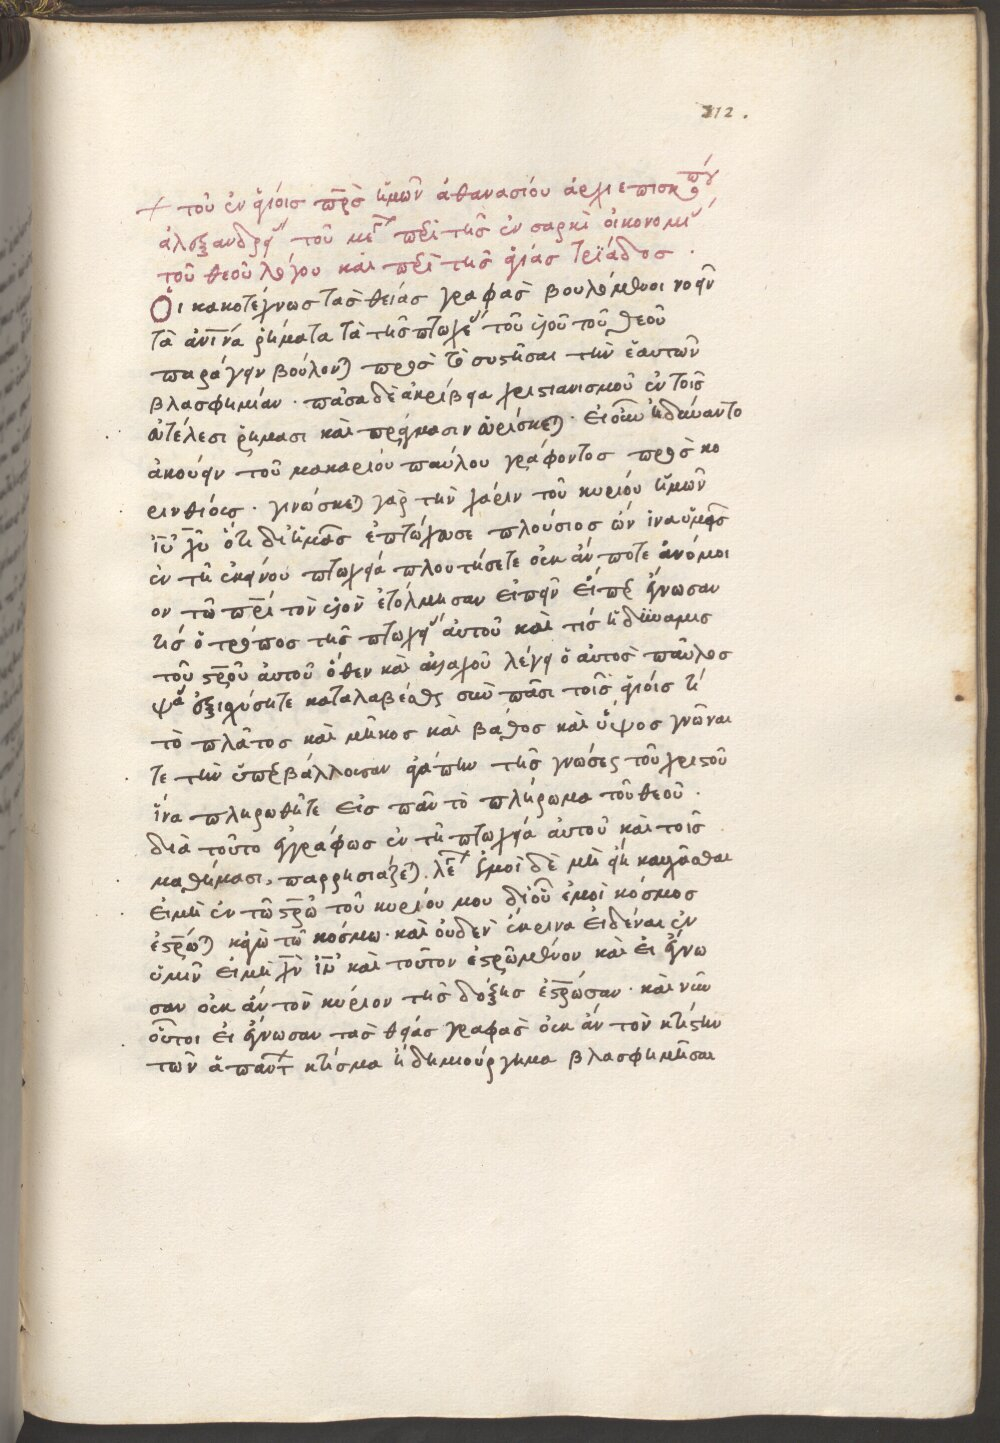 112.
+ τοῦ ἐν ἁγίοις πρ̅ς ἡμῶν ἀθανασίου ἀρχιεπισκόπου
ἀλεξανδρείας τοῦ με περὶ τῆς ἐν σαρκὶ οἰκονομίας
τοῦ θεοῦ λόγου καὶ περὶ τῆς ἁγίας τριάδος .
Οἱ κακοτέχνως τὰς θείας γραφὰς βουλόμενοι νοεῖν
τὰ ἀν̅ινά ῥήματα τὰ τῆς πτωχείας τοῦ υἱοῦ τοῦ θεοῦ
παράγειν βούλονται πρὸς τὸ συστῆσαι τὴν ἑαυτῶν
βλασφημίαν · πᾶσα δὲ ἀκρίβεια χριστιανισμοῦ ἐν τοῖς
εὐτελέσι ῥήμασι καὶ πράγμασιν εὑρίσκεται · εἰ οὖν ἠδύναντο
ἀκούειν τοῦ μακαρίου παύλου γράφοντος πρὸς κο
ρινθίοις · γινώσκεται γὰρ τὴν χάριν τοῦ κυρίου ἡμῶν
ι̅υ̅ χ̅υ̅ ὅτι δι ἡμᾶς ἐπτώχευσε πλούσιος ὢν ἵνα ὑμεῖς
ἐν τῇ ἐκείνου πτωχείᾳ πλουτήσετε οὐκ ἄν ποτε ἀνόμοι
ον τῷ πρ̅ὶ τὸν υἱὸν ἐτόλμησαν εἰπεῖν εἴπερ ἔγνωσαν
τίς ὁ τρόπος τῆς πτωχείας αὐτοῦ καὶ τίς ἡ δύναμις
τοῦ στ̅ρ̅οῦ αὐτοῦ ὅθεν καὶ ἀλλαχοῦ λέγει ὁ αὐτὸς παῦλος
ἵνα ἐξισχύσητε καταλαβέσθαι σὺν πᾶσι τοῖς ἁγίοις τί
τὸ πλᾶτος καὶ μῆκος καὶ βάθος καὶ ὕψος γνῶναι
τε τὴν ὑπερβάλλουσαν ἀγάπην τῆς γνώσεως τοῦ χριστοῦ
ἵνα πληρωθῆτε εἰς πᾶν τὸ πλήρωμα τοῦ θεοῦ ·
διὰ τοῦτο ἐγγράφως ἐν τῇ πτωχείᾳ αὐτοῦ καὶ τοῖς
παθήμασι, παρρησιάζεται. λε ἐμοὶ δὲ μὴ γένοιτο καυχᾶσθαι
εἰ μὴ ἐν τῷ στ̅ρ̅ῷ τοῦ κυρίου μου δι οὗ ἐμοὶ κόσμος
ἐστ̅ρ̅ώται κἀγὼ τῷ κόσμῳ · καὶ οὐδὲν ἔκρινα εἰδέναι ἐν
ὑμῖν εἰ μὴ χ̅ν̅ ι̅ν̅ καὶ τοῦτον ἐστρ̅ωμένον καὶ εἰ ἔγνω
σαν οὐκ ἂν τὸν κύριον τῆς δόξης ἐστ̅ρ̅ωσαν · καὶ νῦν
οὗτοι εἰ ἔγνωσαν τὰς θείας γραφὰς οὐκ ἂν τὸν κτίστην
τῶν ἁπάντ κτίσμα ἢ δημιούργημα βλασφημῆσαι